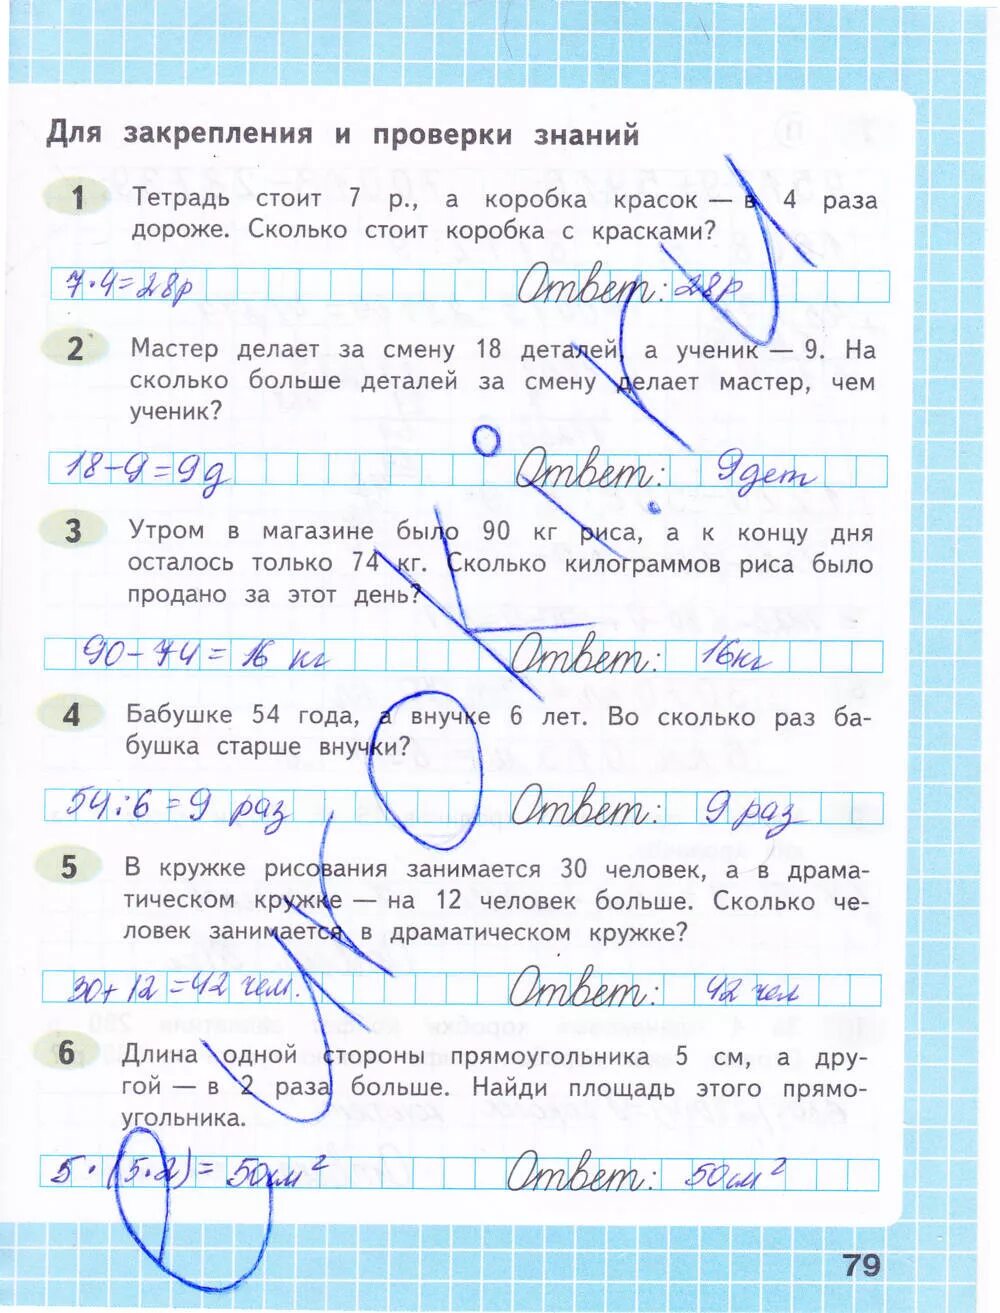 Для закрепления и проверки знаний
1 Тетрадь стоит 7 р., а коробка красок — в 4 раза
дороже. Сколько стоит коробка с красками?
7·4=28р Ответ: 28р
2 Мастер делает за смену 18 деталей, а ученик — 9. На
сколько больше деталей за смену делает мастер, чем
ученик?
18-9=9д Ответ: 9дет
3 Утром в магазине было 90 кг риса, а к концу дня
осталось только 74 кг. Сколько килограммов риса было
продано за этот день?
90-74=16 кг Ответ: 16кг
4 Бабушке 54 года, а внучке 6 лет. Во сколько раз ба-
бушка старше внучки?
54:6=9 раз Ответ: 9 раз
5 В кружке рисования занимается 30 человек, а в драма-
тическом кружке — на 12 человек больше. Сколько че-
ловек занимается в драматическом кружке?
30+12=42 чел. Ответ: 42 чел
6 Длина одной стороны прямоугольника 5 см, а дру-
гой — в 2 раза больше. Найди площадь этого прямо-
угольника.
5·(5·2)=50см² Ответ: 50см²
79